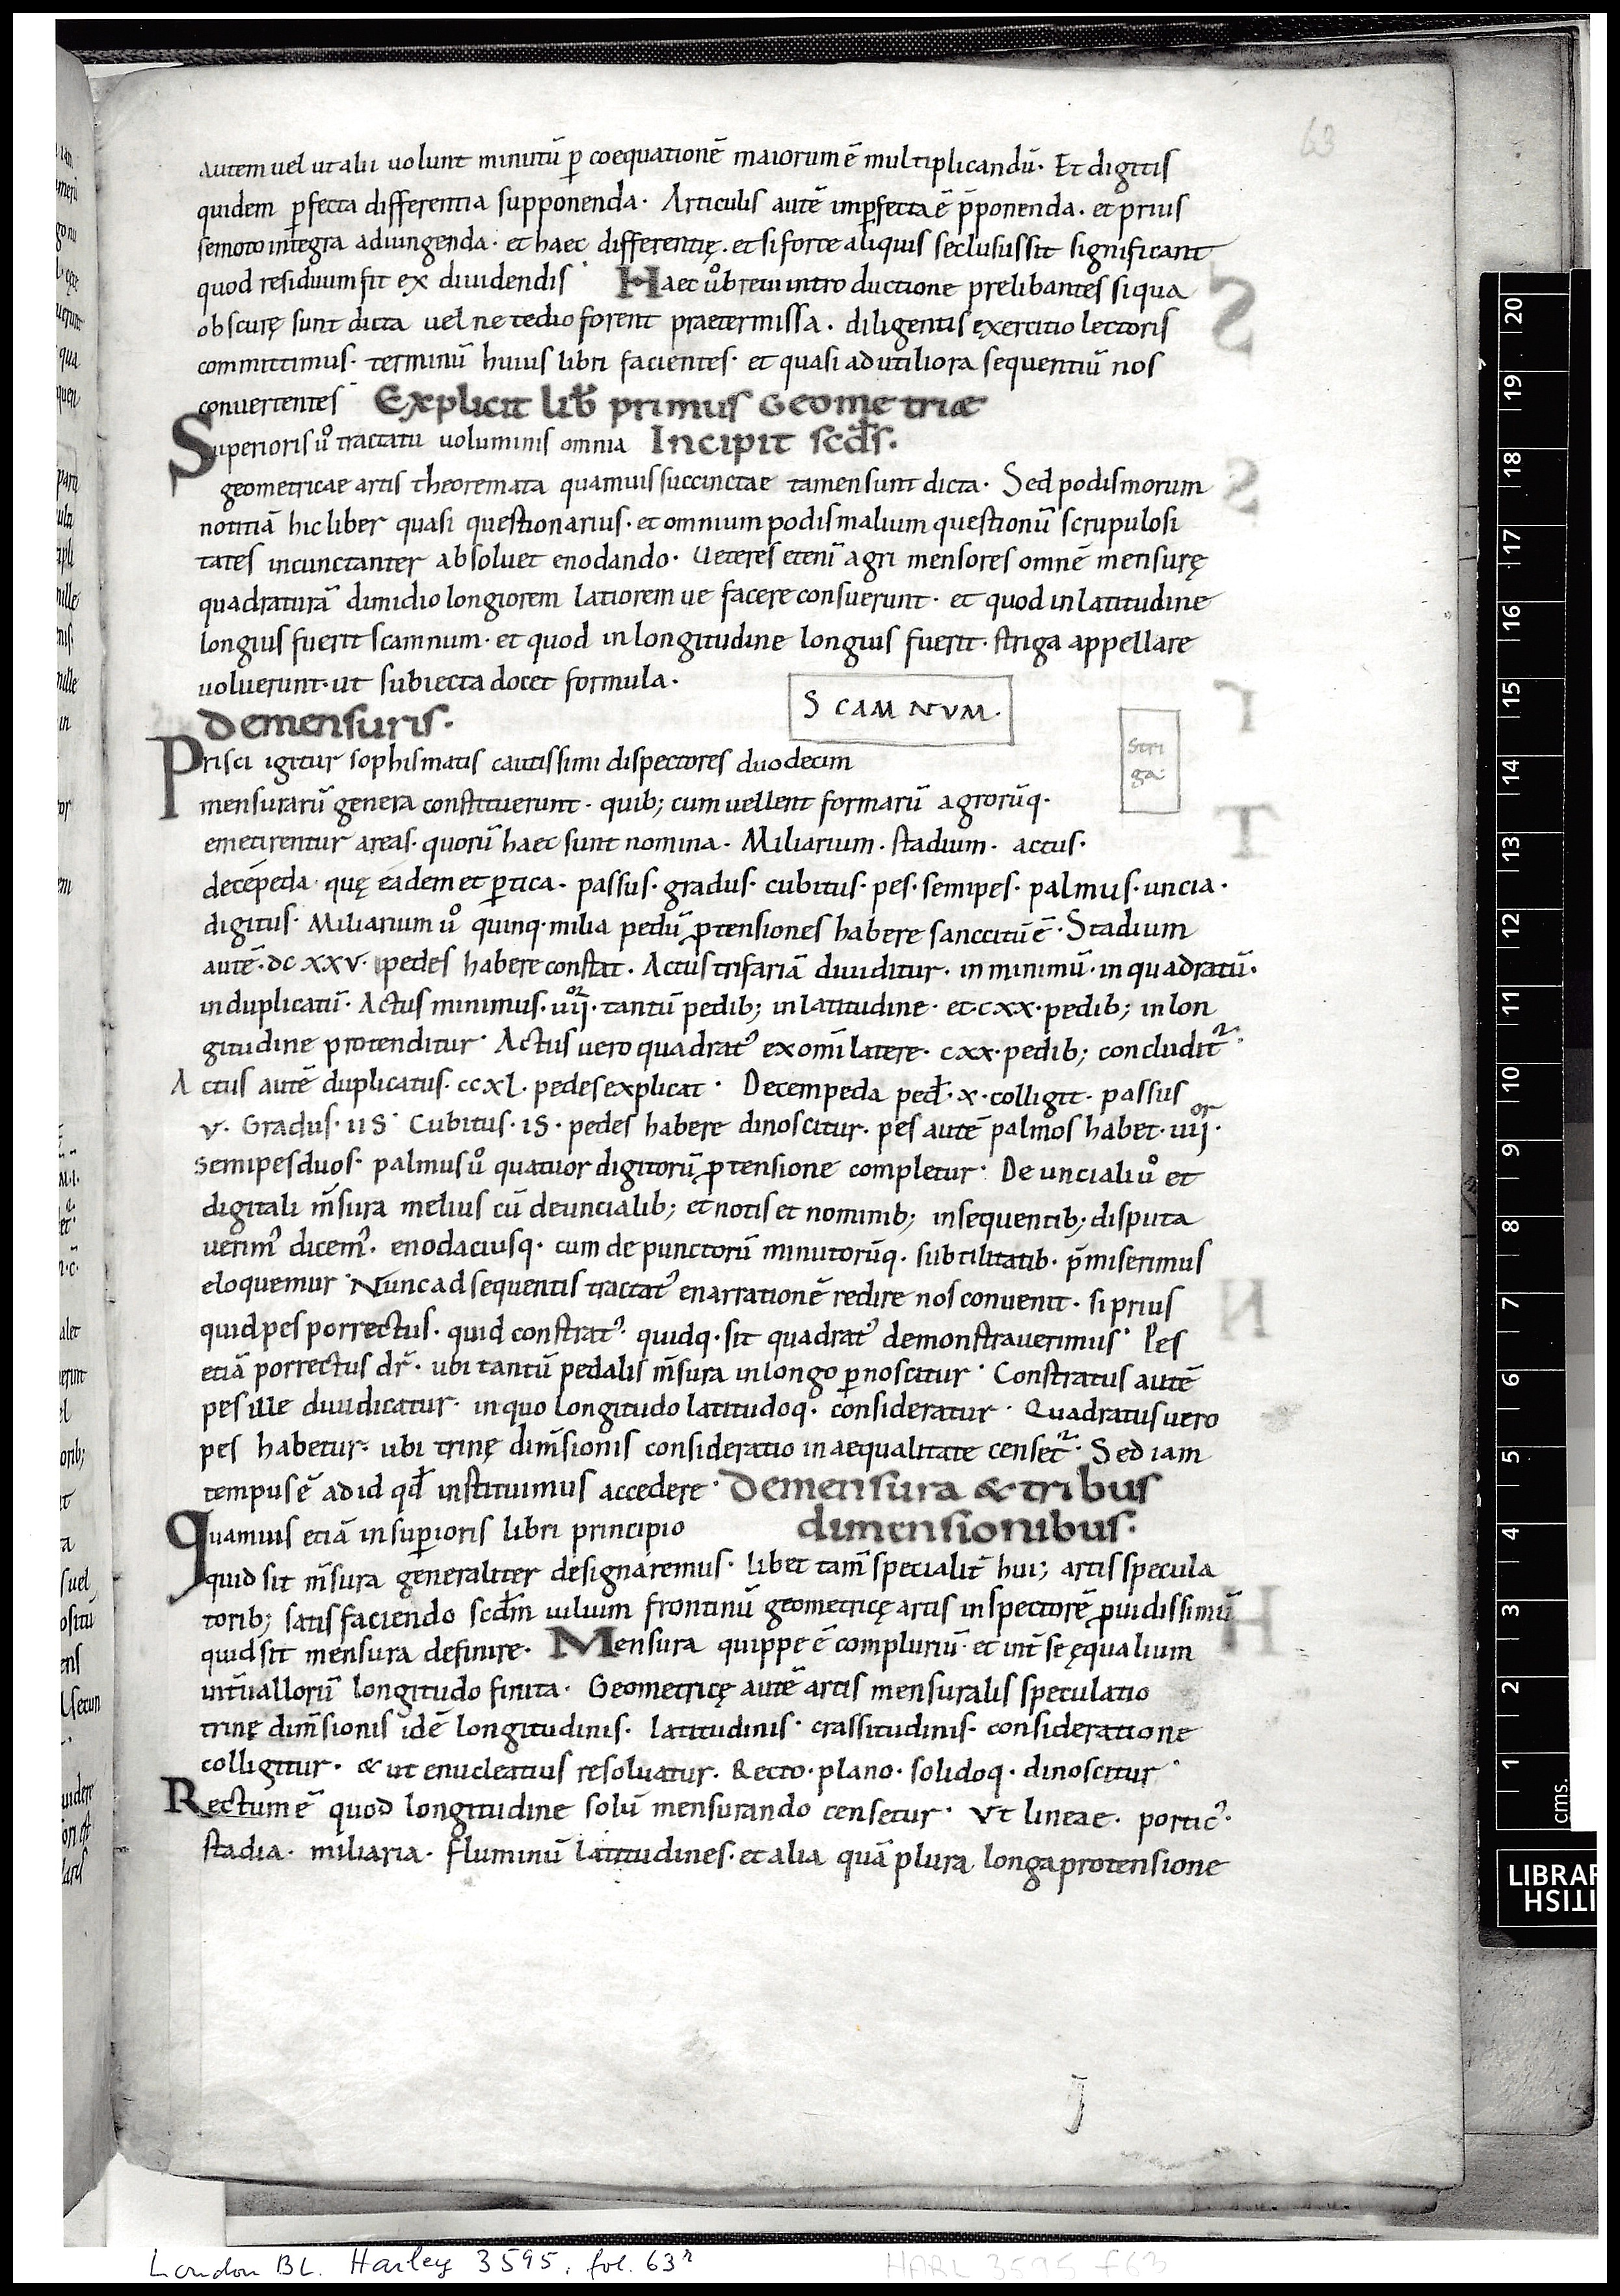 63
autem uel ut alii uolunt minutū p̄ coequationē maiorum ē multiplicandū· Et digitis
quidem p̄fecta differentia supponenda· Articulis autē imp̄fecta ē p̄ponenda· et prius
semoto integra adiungenda· et haec differentię· et si forte aliquis seclusus sit significant
quod residuum fit ex diuidendis· Haec u̇ breui introductione prelibantes si qua
obscurę sunt dicta uel ne tedio forent praetermissa· diligentis exercitio lectoris
committimus· terminū huius libri facientes· et quasi ad utiliora sequentiū nos
conuertentes· Explicit lib̄ primus Geometriæ
Superioris u̇ tractatu uoluminis omnia Incipit scds̄·
geometricae artis theoremata quamuis succinctae tamen sunt dicta· Sed podismorum
notitiā hic liber quasi questionarius· et omnium podismalium questionū scrupulosi
tates incunctanter absoluet enodando· Ueteres etenī agri mensores omnē mensurę
quadraturā dimidio longiorem latiorem ue facere consuerunt· et quod in latitudine
longius fuerit scamnum· et quod in longitudine longius fuerit· striga appellare
uoluerunt· ut subiecta docet formula·
SCAMNVM·
Stri
ga·
De mensuris·
Prisci igitur sophismatis cautissimi dispectores duodecim
mensurarū genera constituerunt· quib; cum uellent formarū agrorūq·
emetirentur areas· quorū haec sunt nomina· Miliarium· stadium· actus·
decēpeda· quę eadem et p̄tica· passus· gradus· cubitus· pes· semipes· palmus· uncia·
digitus· Miliarium u̇ quinq· milia pedū p̄tensiones habere sanccitū ē· Stadium
autē· dcxxv· pedes habere constat· Actus trifariā diuiditur· in minimū· in quadratū·
in duplicatū· Actus minimus· iiij· tantū pedib; in latitudine· et· cxx· pedib; in lon
gitudine protenditur· Actus uero quadrat᾽ ex omī latere· cxx· pedib; concludit᷑·
Actus autē duplicatus· ccxl· pedes explicat· Decempeda ped̄· x· colligit· passus
v· Gradus· iiS· Cubitus· iS· pedes habere dinoscitur· pes autē palmos habet· iiij·
or
Semipes duos· palmus u̇ quatuor digitorū p̄tensione completur· De unciali u̇ et
digitali m̄sura melius cū de uncialib; et notis et nominib; in sequentib; disputa
uerim᾽ dicem᾽· enodaciusq· cum de punctorū minutorūq· subtilitatib· p̄miserimus
eloquemur· Nunc ad sequentis tractat᾽ enarrationē redire nos conuenit· si prius
quid pes porrectus· quid constrat᾽· quidq· sit quadrat᾽ demonstrauerimus· Pes
etiā porrectus dr̄· ubi tantū pedalis m̄sura in longo p̄noscitur· Constratus autē
pes ille diuidicatur· in quo longitudo latitudoq· consideratur· Quadratus uero
pes habetur· ubi trinę dim̄sionis consideratio in aequalitate censet᷑· Sed iam
tempus ē ad id qd̄ instituimus accedere· De mensura & tribus
Quamuis etiā in sup̄ioris libri principio dimensionibus·
quid sit m̄sura generaliter designaremus· libet tam̄ specialit̄ hui; artis specula
torib; satisfaciendo scdm̄ iulium frontinū geometricę artis inspectorē p̄uidissimū
quid sit mensura definire· Mensura quippe ē compluriū· et int̄ se ęqualium
int̄uallorū longitudo finita· Geometricę autē artis mensuralis speculatio
trinę dim̄sionis idē longitudinis· latitudinis· crassitudinis· consideratione
colligitur· & ut enucleatius resoluatur· Recto· plano· solidoq· dinoscitur·
Rectum ē quod longitudine solū mensurando censetur· Vt lineae· portic᾽·
stadia· miliaria· fluminū latitudines· et alia quā plura longa protensione
London BL. Harley 3595, fol. 63r
HARL 3595 f63
20
19
18
17
16
15
14
13
12
11
10
9
8
7
6
5
4
3
2
1
cms.